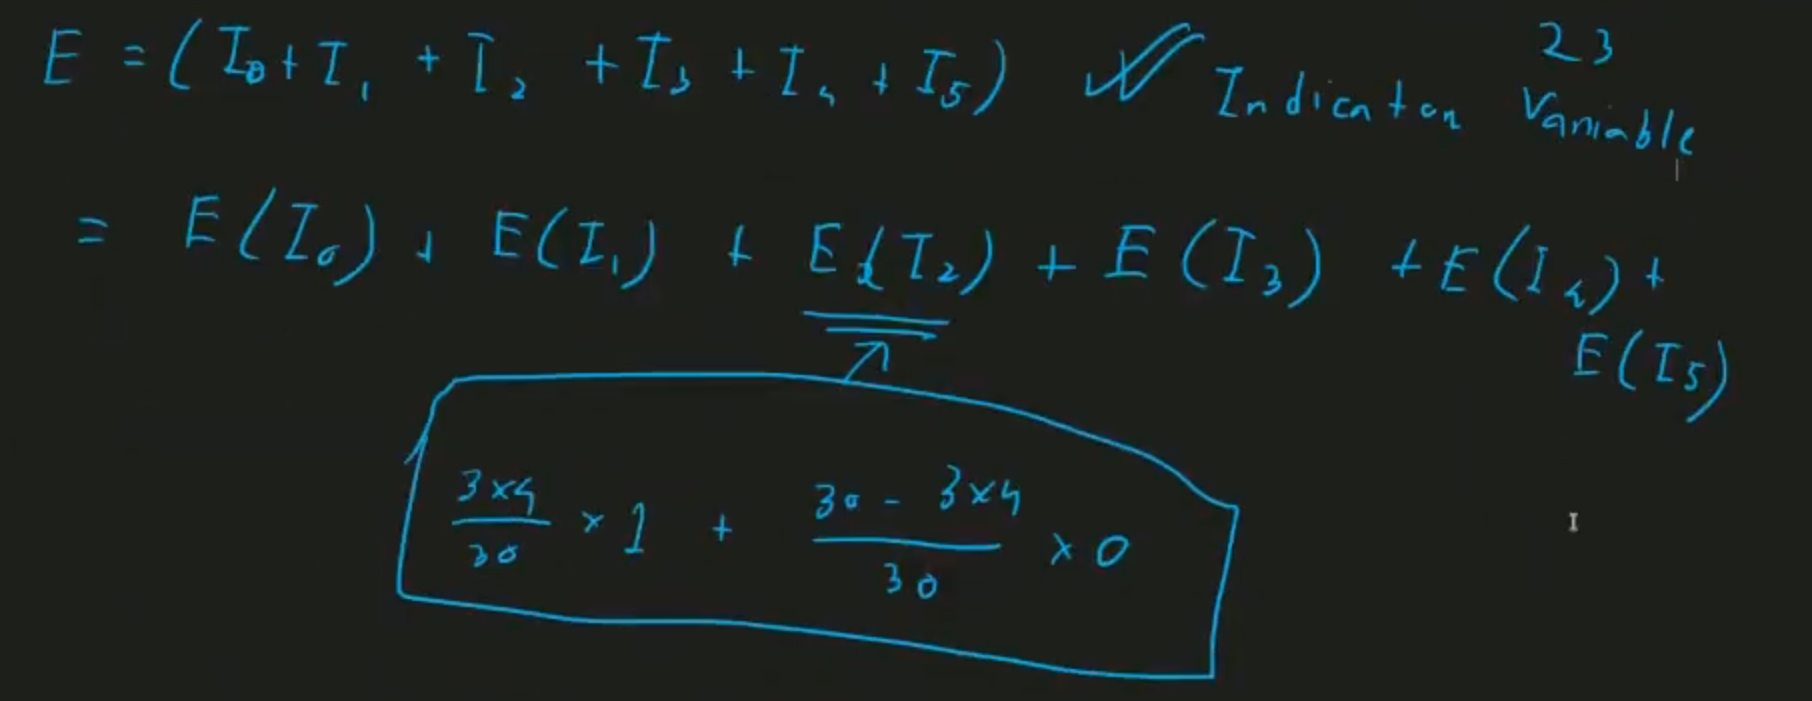 E = (I₀ + I₁ + I₂ + I₃ + I₄ + I₅) Indicator Variable 23
= E(I₀) + E(I₁) + E(I₂) + E(I₃) + E(I₄) +
E(I₅)
3×4/30 × 1 + 30 - 3×4/30 × 0